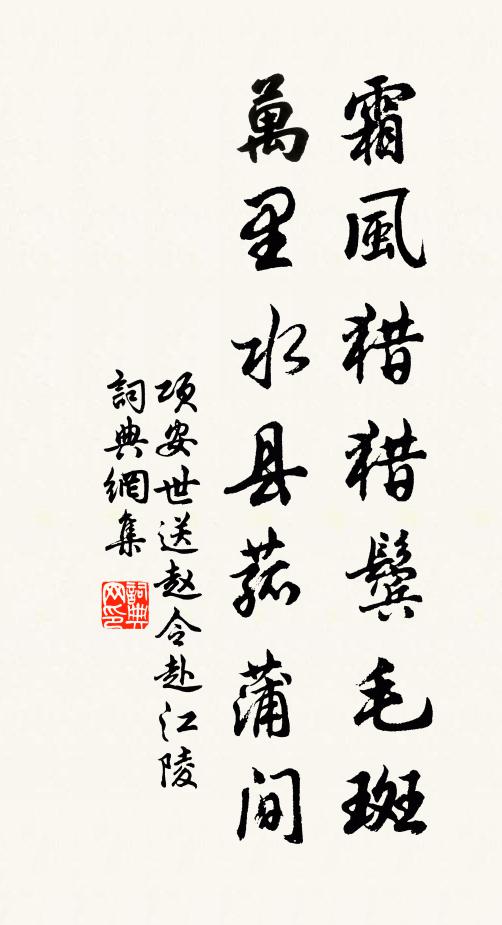 霜風猎猎鬓毛斑
萬里水县菰蒲间
项安世送赵令赴江陵
詞典網集
詞典网印